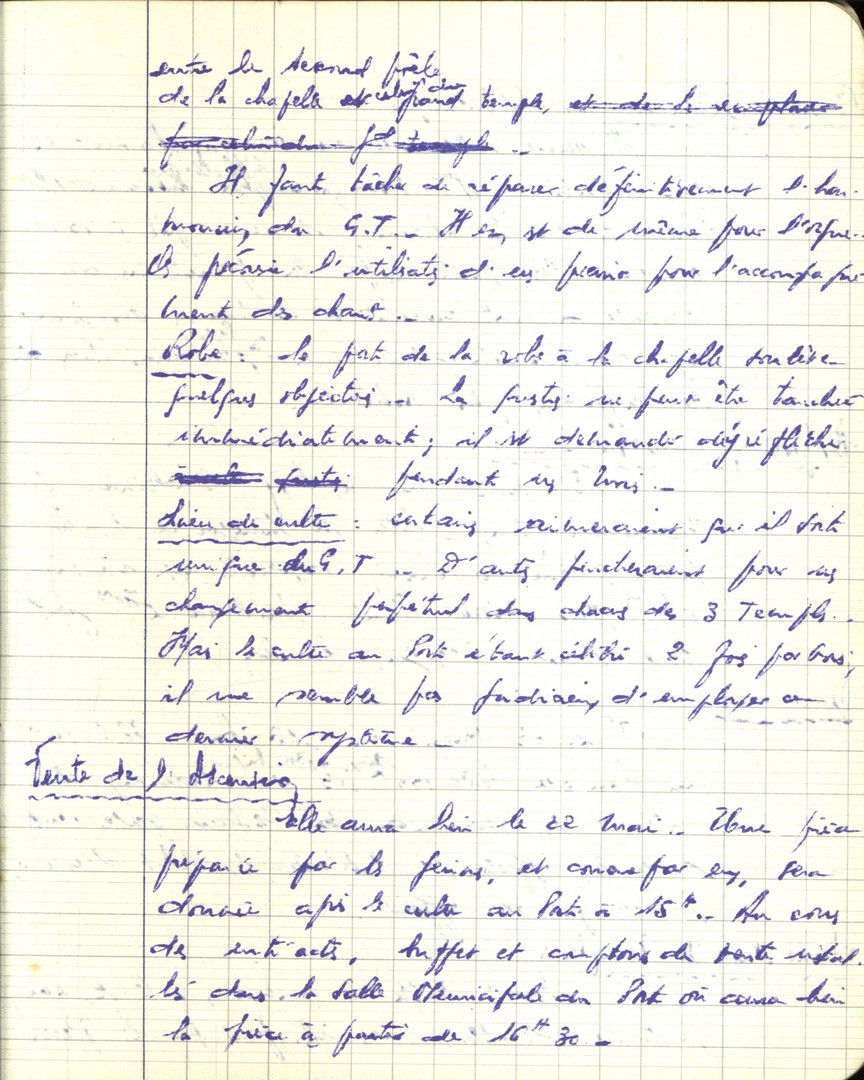 entre le second poêle
de la chapelle et celui du grand temple, et de le remplacer
par celui du gd temple -
Il faut tâcher de réparer définitivement l'har-
monium du G.T. - Il en est de même pour l'orgue.
l'utilisatº d'un piano pour l'accompagne
ment des chants. -
Robe : le port de la robe à la chapelle soulève
quelques objections. - La questº ne peut être tranchée
immédiatement ; il est demandé d'y réfléchir
pendant un mois. -
Lieu de culte : certains aimeraient qu'il soit
unique du G.T. - D'autres pencheraient pour un
changement perpétuel dans chacun des 3 Temples. -
Mais le culte au Port étant célébré 2 fois par mois,
il ne semble pas judicieux d'employer ce
dernier système -
Vente de l'Ascension
Elle aura lieu le 22 mai. - Une pièce
préparée par les jeunes, et conçue par eux, sera
donnée après le culte au Port à 15H. - Au cours
des entr'actes, buffet et comptoirs de vente instal-
lés dans la Salle Municipale du Port où aura lieu
la pièce à partir de 16H30 -